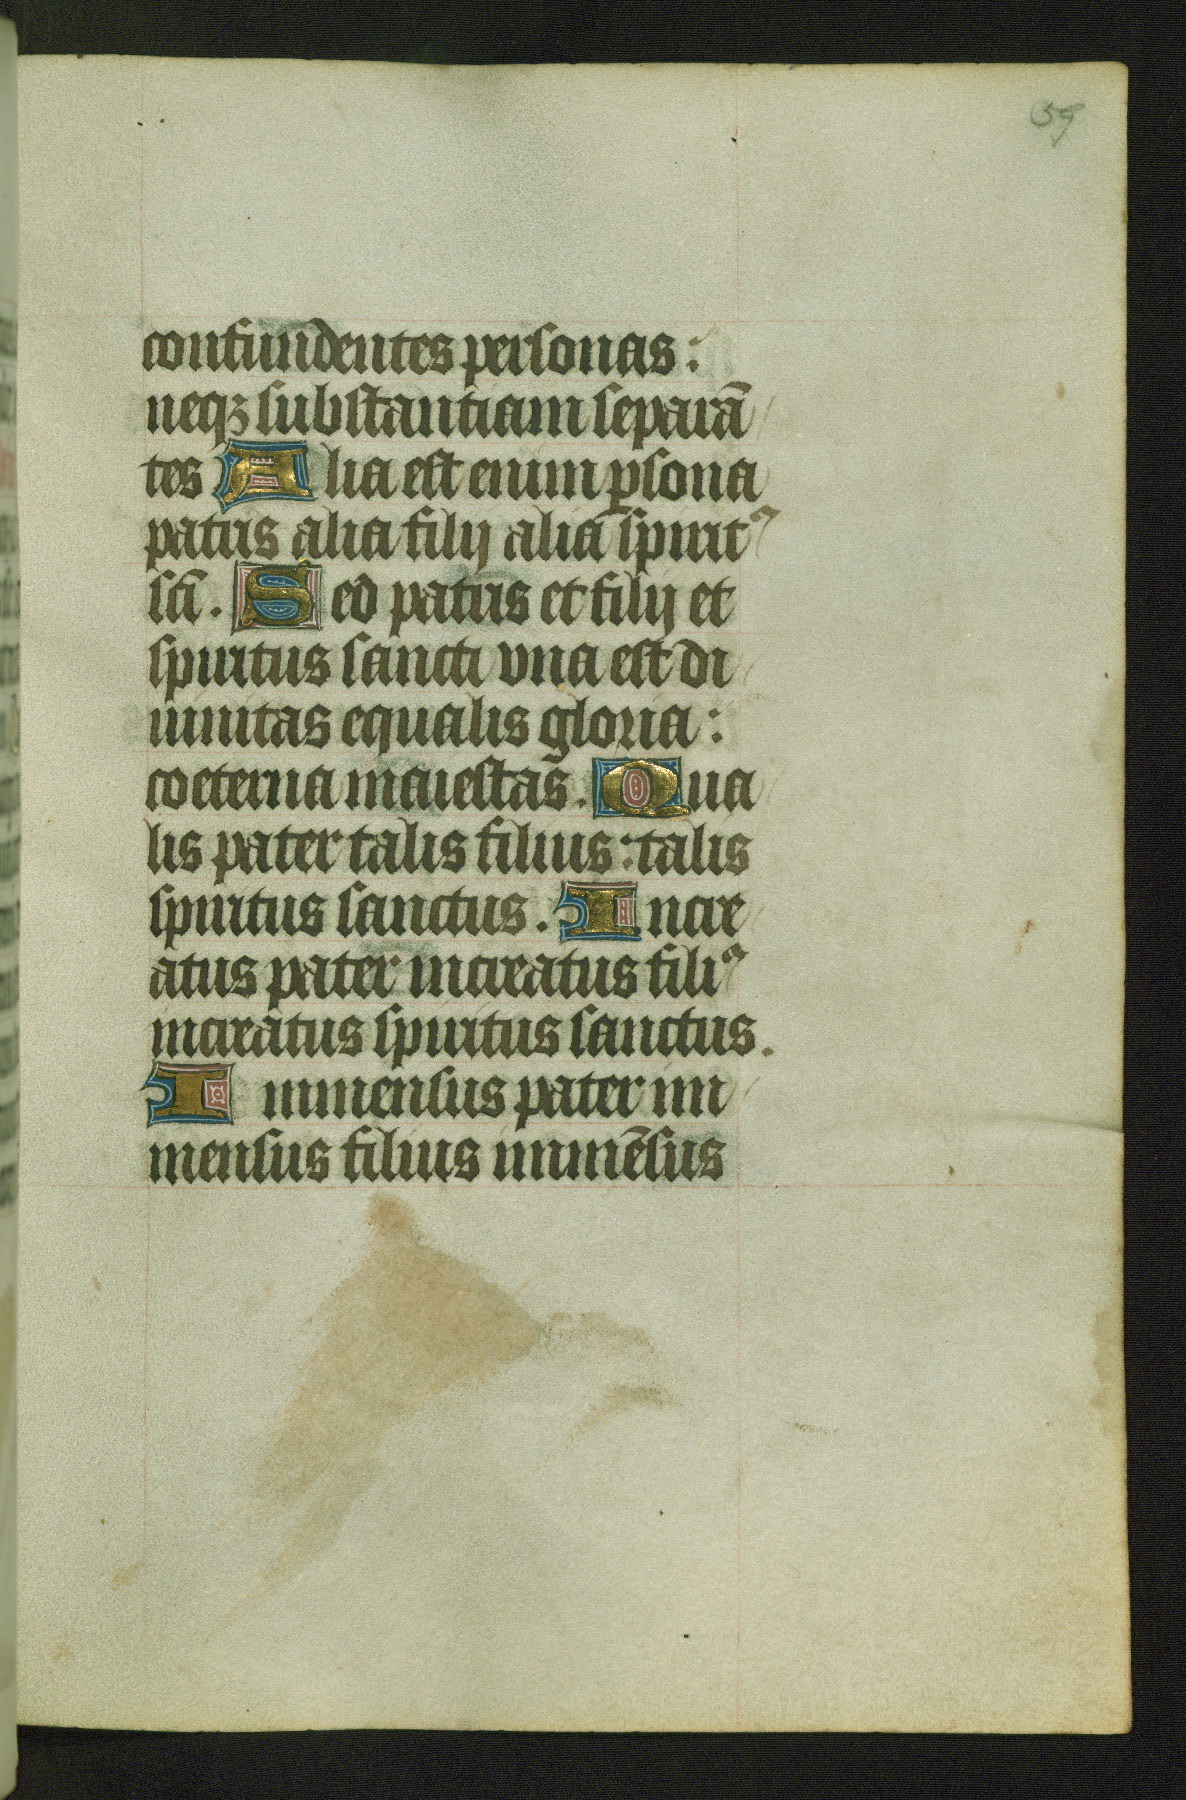 59
confundentes personas:
neqꝫ substantiam separā
tes Alia est enim ꝑsona
patris alia filij alia spiritꝰ
scī. Sed patris et filij et
spiritus sancti vna est di
uinitas equalis gloria:
coeterna maiestas. Qua
lis pater talis filius: talis
spiritus sanctus. Incre
atus pater increatus filiꝰ
increatus spiritus sanctus.
Inmensus pater im
mensus filius immēsus